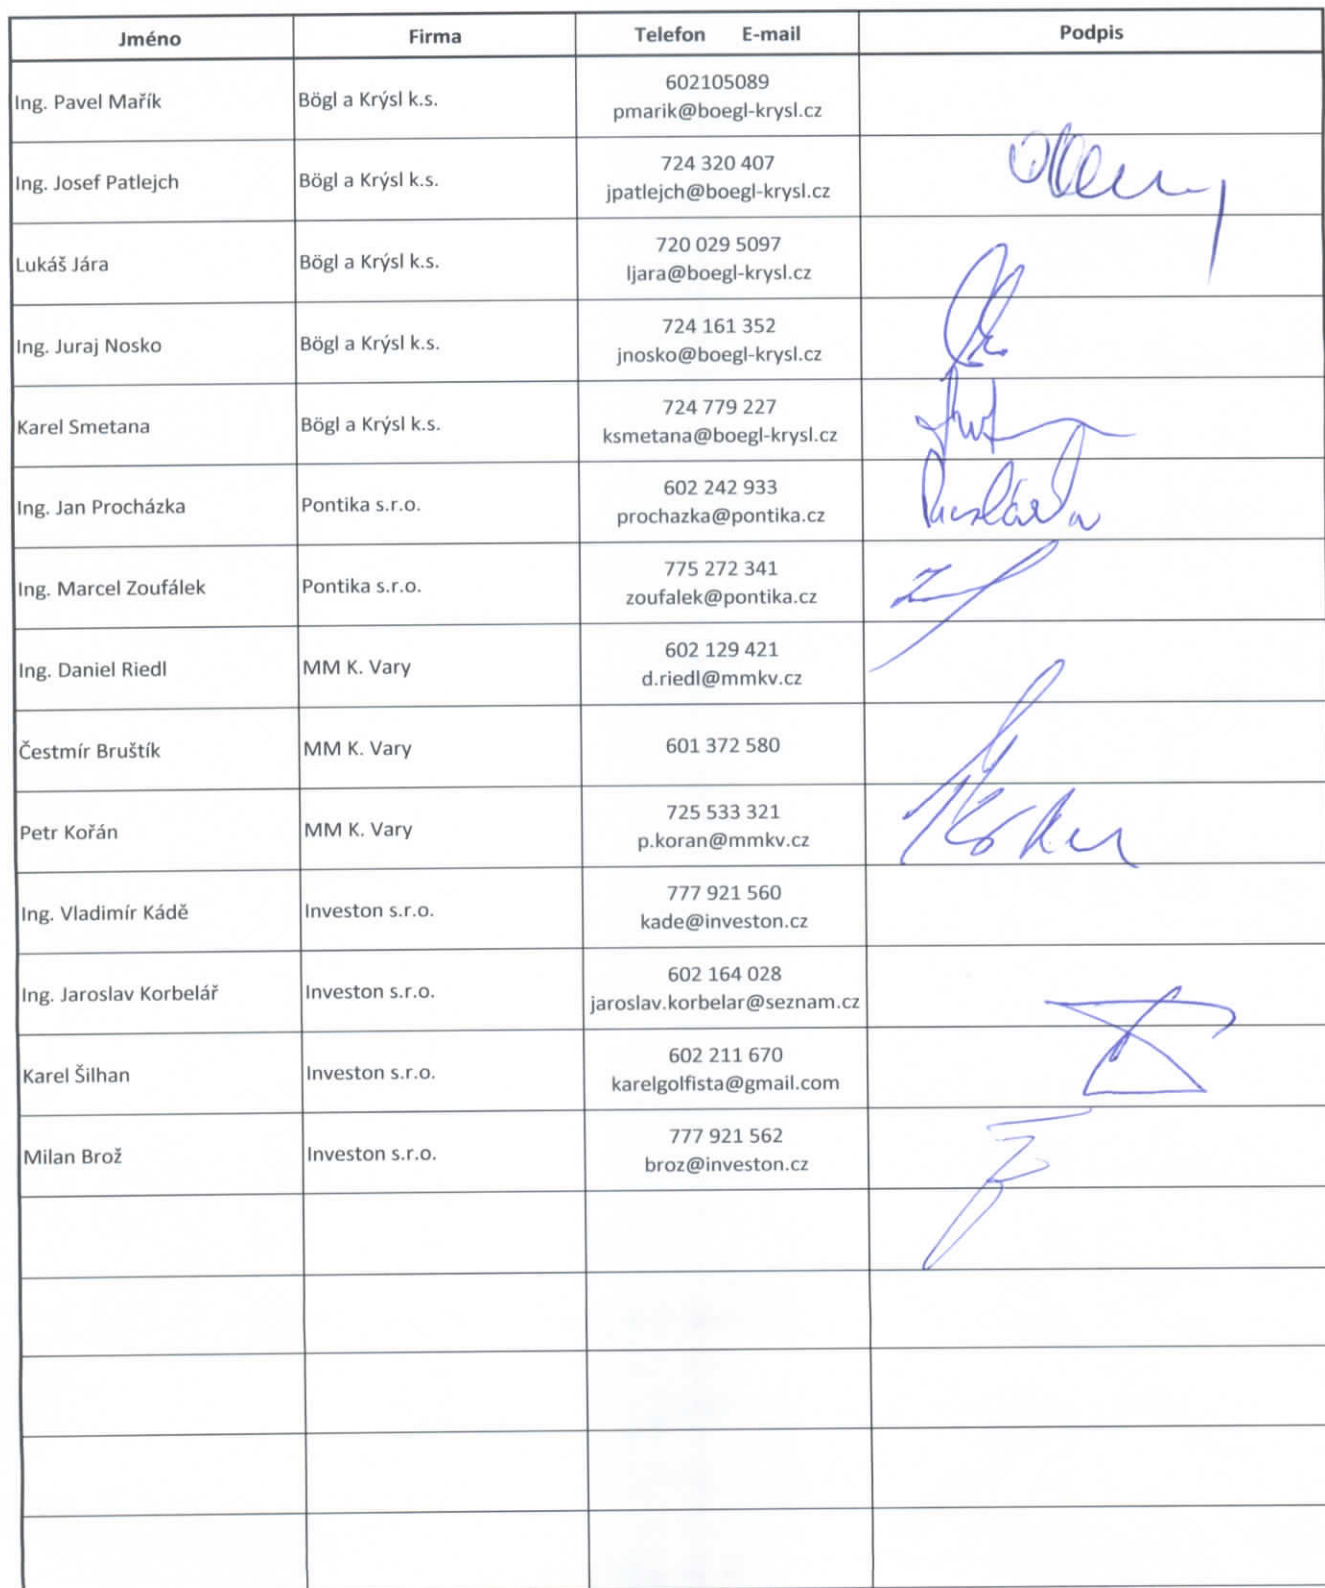 Jméno Firma Telefon E-mail Podpis
Ing. Pavel Mařík Bögl a Krýsl k.s. 602105089
pmarik@boegl-krysl.cz
Ing. Josef Patlejch Bögl a Krýsl k.s. 724 320 407
jpatlejch@boegl-krysl.cz
Lukáš Jára Bögl a Krýsl k.s. 720 029 5097
ljara@boegl-krysl.cz
Ing. Juraj Nosko Bögl a Krýsl k.s. 724 161 352
jnosko@boegl-krysl.cz
Karel Smetana Bögl a Krýsl k.s. 724 779 227
ksmetana@boegl-krysl.cz
Ing. Jan Procházka Pontika s.r.o. 602 242 933
prochazka@pontika.cz
Ing. Marcel Zoufálek Pontika s.r.o. 775 272 341
zoufalek@pontika.cz
Ing. Daniel Riedl MM K. Vary 602 129 421
d.riedl@mmkv.cz
Čestmír Bruštík MM K. Vary 601 372 580
Petr Kořán MM K. Vary 725 533 321
p.koran@mmkv.cz
Ing. Vladimír Kádě Investon s.r.o. 777 921 560
kade@investon.cz
Ing. Jaroslav Korbelář Investon s.r.o. 602 164 028
jaroslav.korbelar@seznam.cz
Karel Šilhan Investon s.r.o. 602 211 670
karelgolfista@gmail.com
Milan Brož Investon s.r.o. 777 921 562
broz@investon.cz